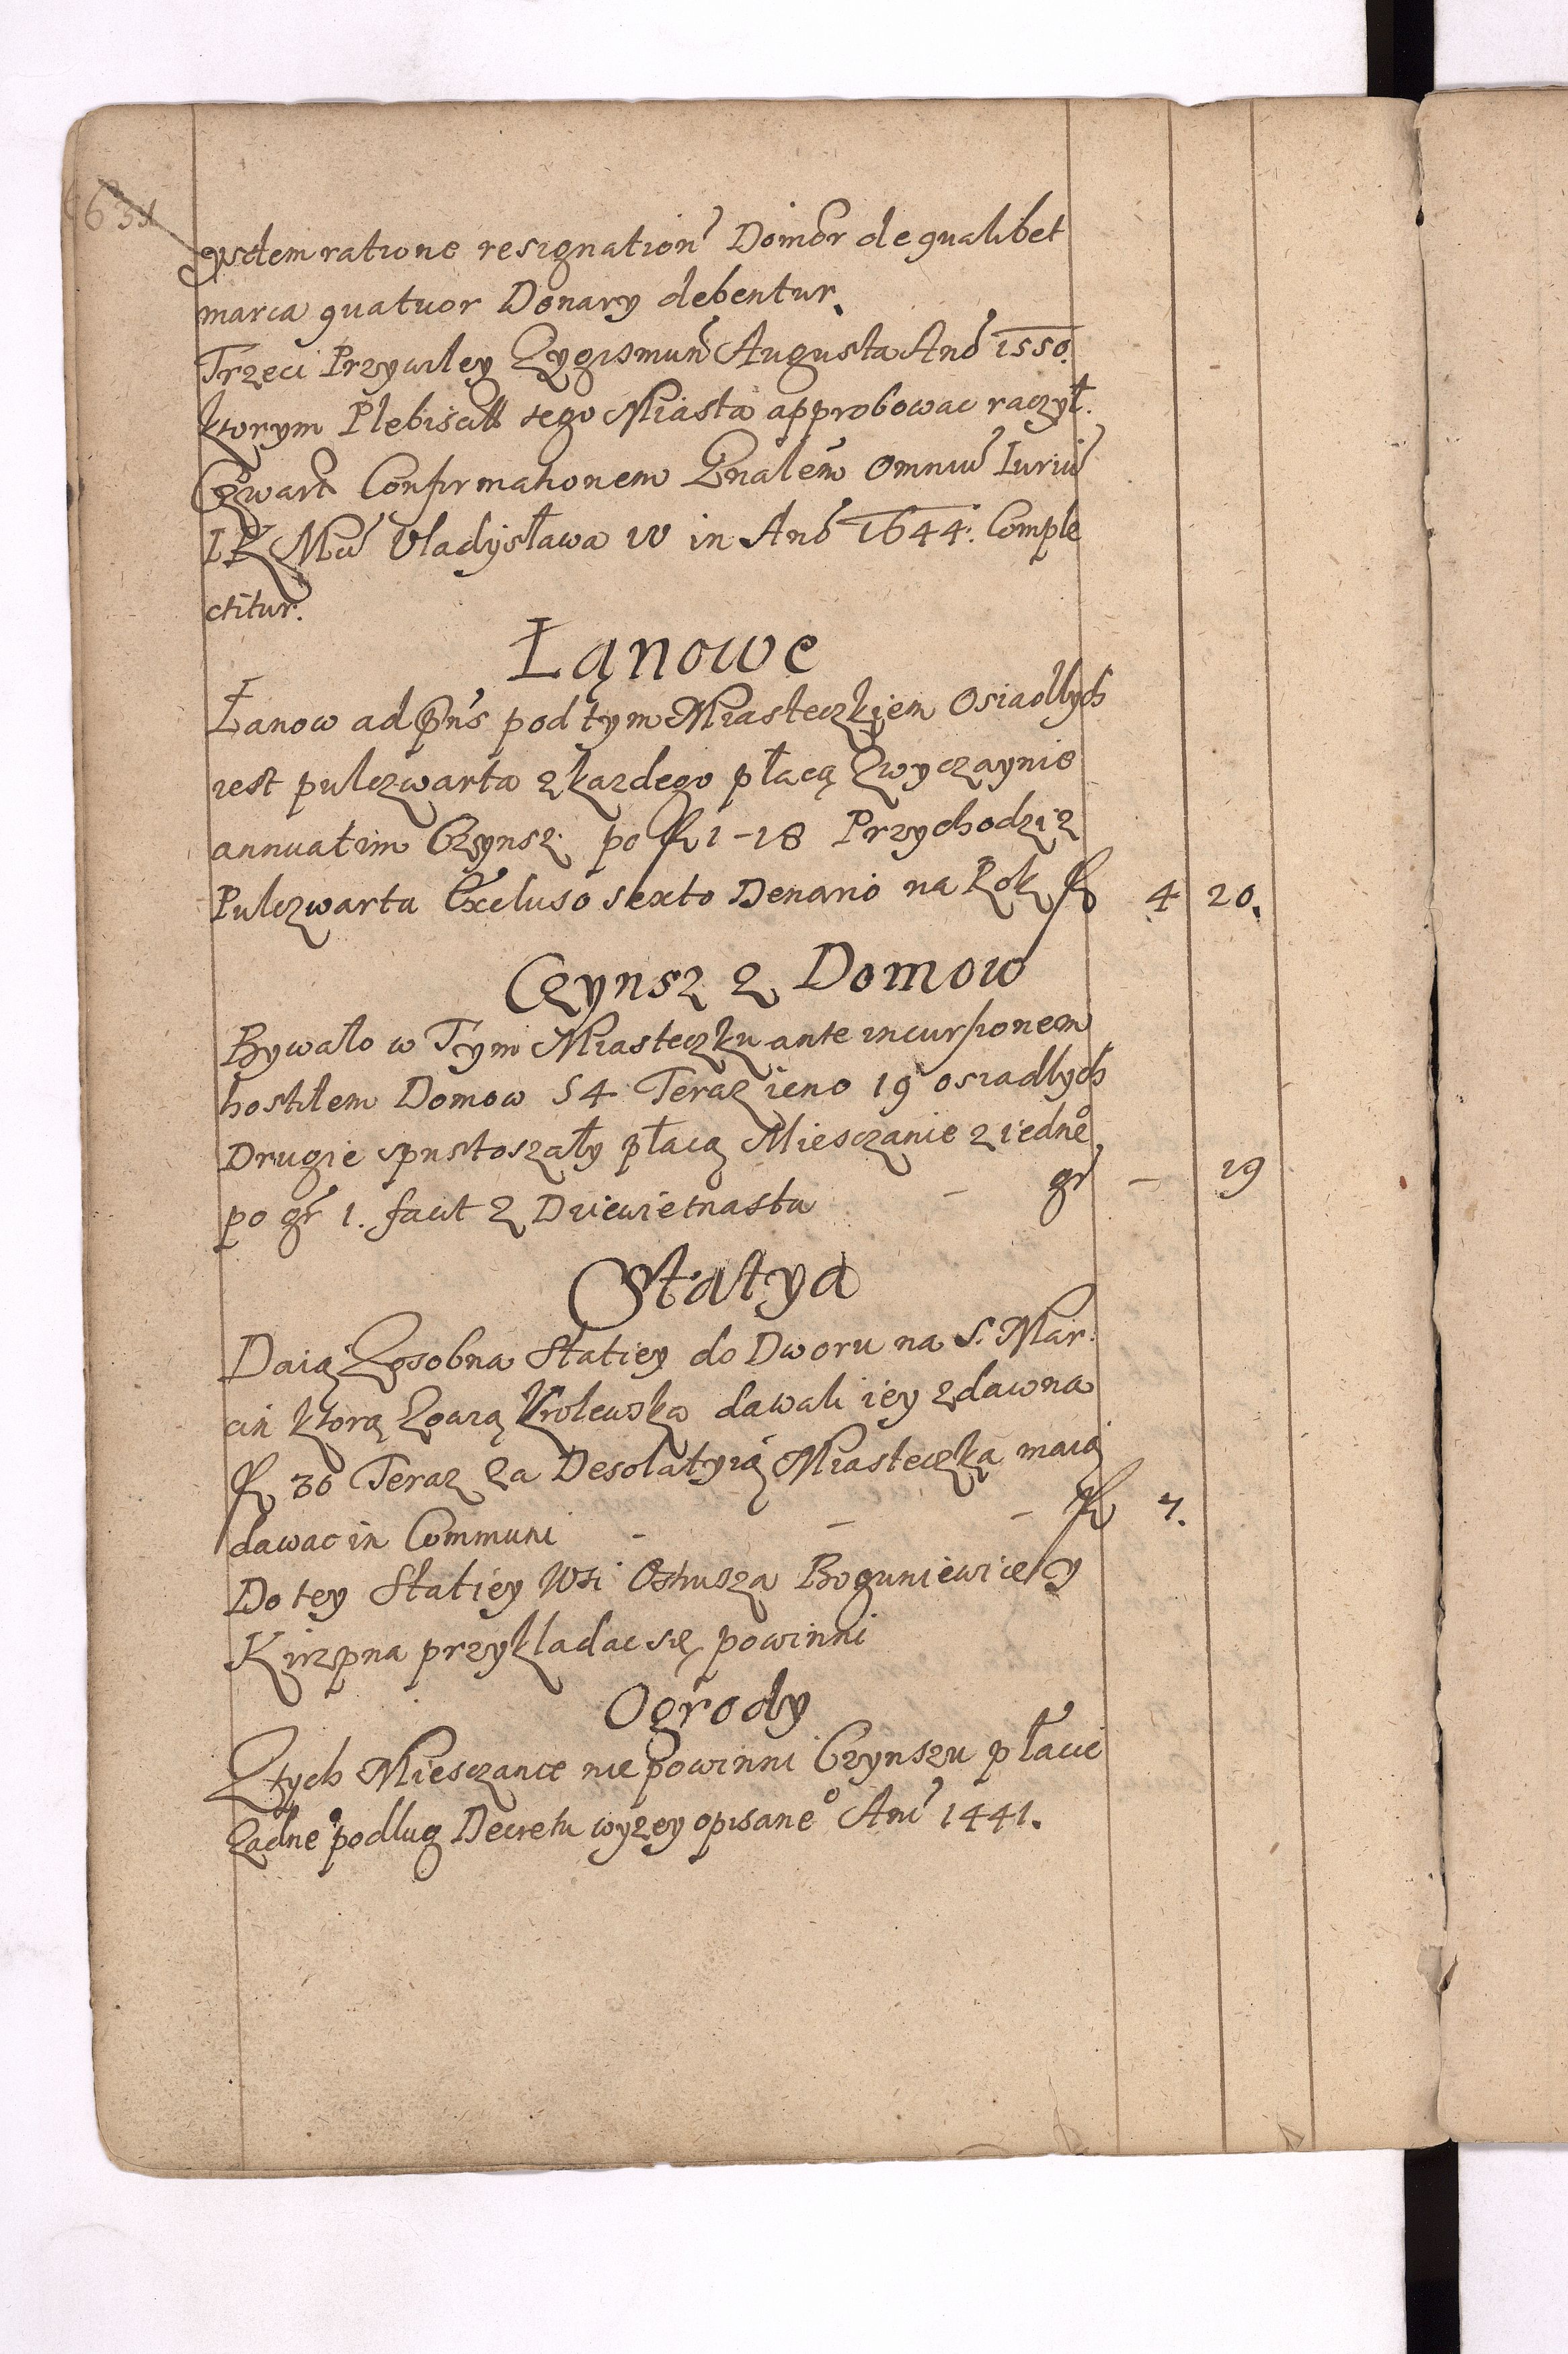 634
ysdem ratione resignation Domor de qualibet
marca quatuor Denary debentur.
Trzeci Przywiley Zygismun Augusta Ano 1550.
ktorym Plebiscitt tego Miasta approbowac raczył.
Czwart Confirmationem Gnalem omniu Iuriu
IK Mci Vladysława IV in Ano 1644. Comple
ctitur.
Łąnowe
Łanow ad pns pod tym Miasteczkiem Osiadłych
iest pulczwarta z kazdego płacą Zwyczaynie
annuatim Czynsz po fl 1-18 Przychodzi z
Pulczwarta Excluso sexto Denario na Rok fl 4 20.
Czynsz z Domow
Bywało w Tym Miasteczku ante incursionem
hostilem Domow 54 Teraz ieno 19 osiadłych
Drugie spustoszały płacą Miesczanie z iedne°
po gr 1. facit z Dziewietnastu - gr - 19
Statya
Daią Zosobna Statiey do Dworu na S. Mar
cin ktorą Zowią Krolewska dawali iey zdawna
fl 30 Teraz Za Desolatyią Miasteczka maią
dawac in Communi - - - fl 7.
Do tey Statiey Wsi Boguniewice y
Kirzpna przykladac się powinni
Ogrody
Ztych Miesczanie nie powinni Czynszu płacic
Zadne° podlug Decretu wyzey opisane° Ani 1441.